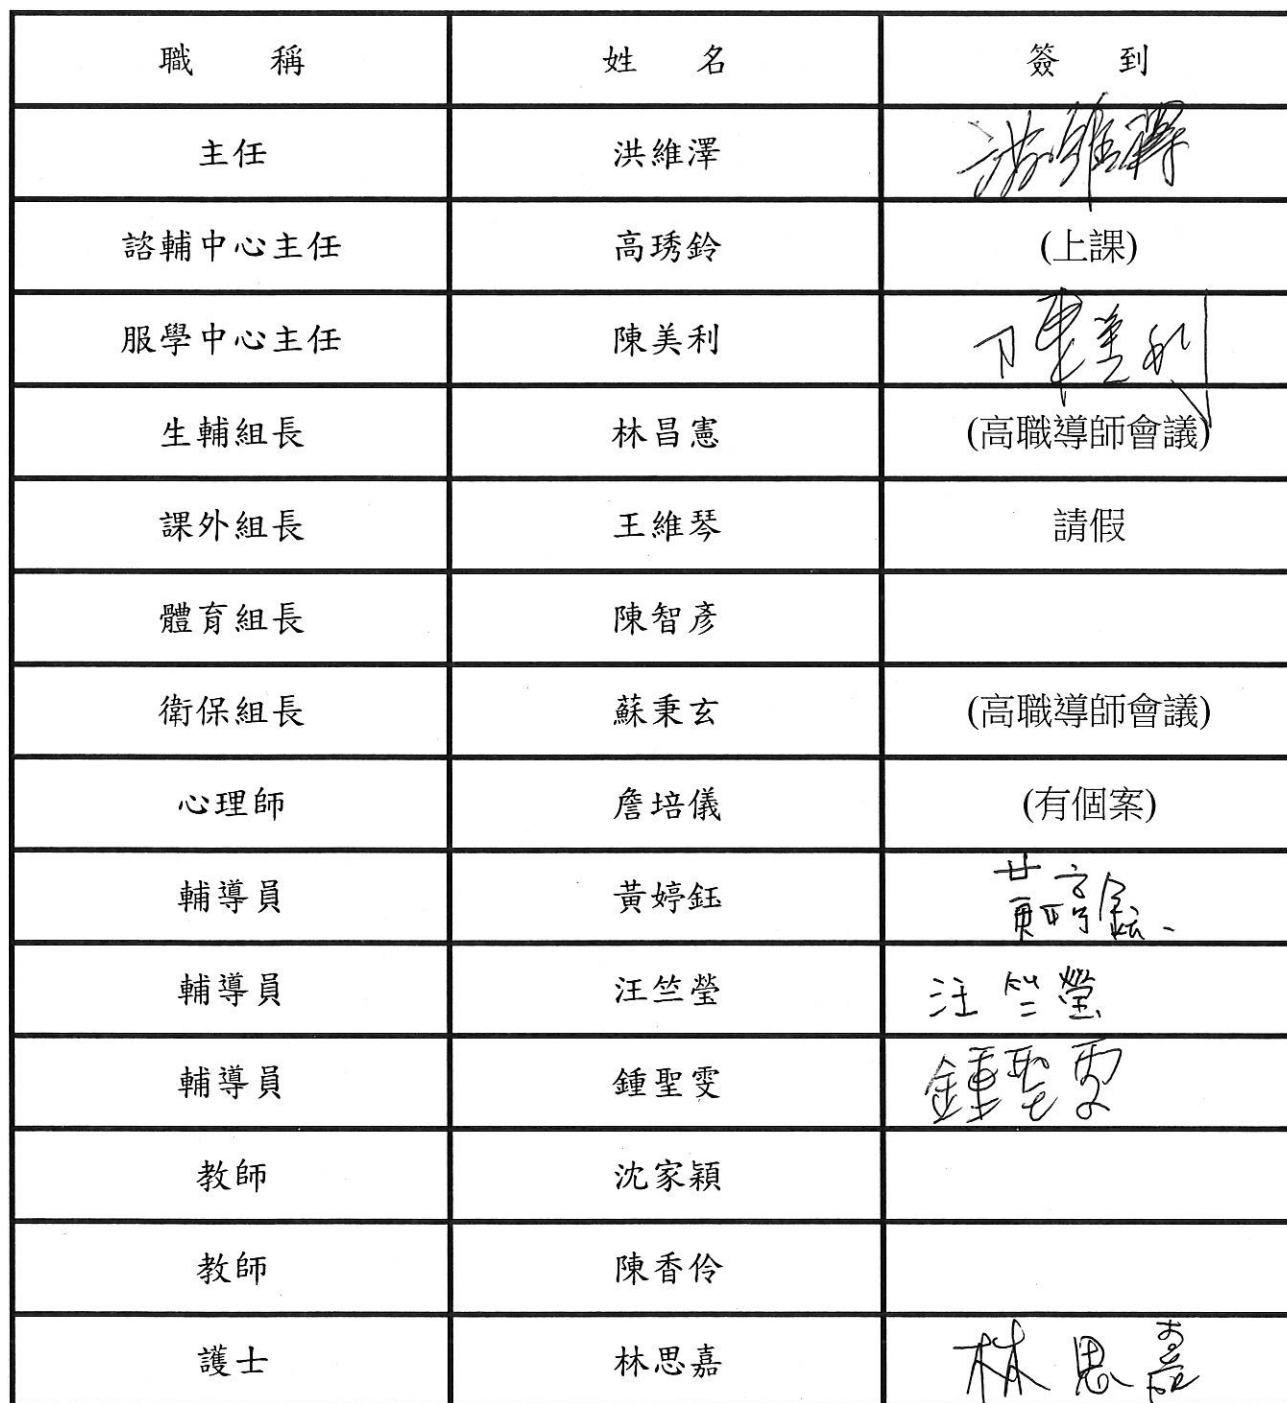 職稱 姓名 簽到
主任 洪維澤 洪維澤
諮輔中心主任 高琇鈴 (上課)
服學中心主任 陳美利 陳美利
生輔組長 林昌憲 (高職導師會議)
課外組長 王維琴 請假
體育組長 陳智彥
衛保組長 蘇秉玄 (高職導師會議)
心理師 詹培儀 (有個案)
輔導員 黃婷鈺 黃婷鈺
輔導員 汪竺瑩 汪竺瑩
輔導員 鍾聖雯 鍾聖雯
教師 沈家穎
教師 陳香伶
護士 林思嘉 林思嘉